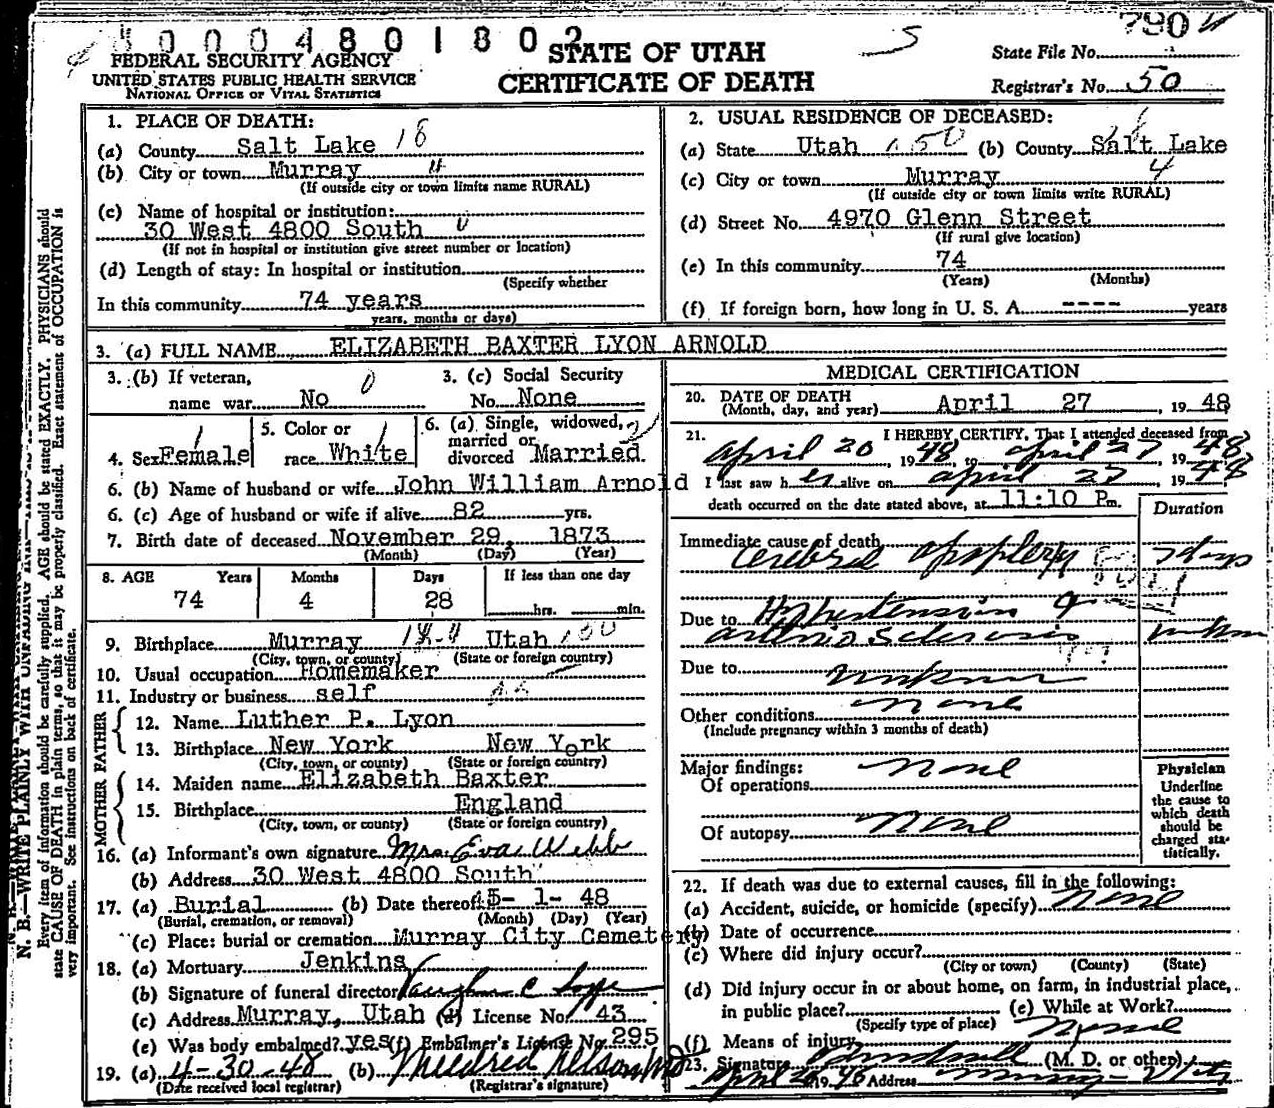 50004801802
7904
FEDERAL SECURITY AGENCY
UNITED STATES PUBLIC HEALTH SERVICE
NATIONAL OFFICE OF VITAL STATISTICS
STATE OF UTAH
CERTIFICATE OF DEATH
State File No.
Registrar's No. 50
1. PLACE OF DEATH:
(a) County Salt Lake 18
(b) City or town Murray 4
(If outside city or town limits name RURAL)
(c) Name of hospital or institution:
30 West 4800 South 0
(If not in hospital or institution give street number or location)
(d) Length of stay: In hospital or institution
(Specify whether
In this community 74 years
years, months or days)
2. USUAL RESIDENCE OF DECEASED:
(a) State Utah 050 (b) County Salt Lake
(c) City or town Murray 4
(If outside city or town limits write RURAL)
(d) Street No. 4970 Glenn Street
(If rural give location)
(e) In this community 74
(Years) (Months)
(f) If foreign born, how long in U. S. A. ---- years
3. (a) FULL NAME ELIZABETH BAXTER LYON ARNOLD
3. (b) If veteran, 0
name war No
3. (c) Social Security
No. None
4. Sex Female
5. Color or
race White
6. (a) Single, widowed,
married or
divorced Married
6. (b) Name of husband or wife John William Arnold
6. (c) Age of husband or wife if alive 82 yrs.
7. Birth date of deceased November 29, 1873
(Month) (Day) (Year)
8. AGE Years Months Days If less than one day
74 4 28 hrs. min.
9. Birthplace Murray 18-4 Utah
(City, town, or county) (State or foreign country)
10. Usual occupation Homemaker
11. Industry or business self
FATHER
12. Name Luther P. Lyon
13. Birthplace New York New York
(City, town, or county) (State or foreign country)
MOTHER
14. Maiden name Elizabeth Baxter
15. Birthplace England
(City, town, or county) (State or foreign country)
16. (a) Informant's own signature Mrs. Eva Webb
(b) Address 30 West 4800 South
17. (a) Burial (b) Date thereof 5- 1- 48
(Burial, cremation, or removal) (Month) (Day) (Year)
(c) Place: burial or cremation Murray City Cemetery
18. (a) Mortuary Jenkins
(b) Signature of funeral director Vaughn C
(c) Address Murray, Utah (d) License No. 43
(e) Was body embalmed? yes (f) Embalmer's License No. 295
19. (a) 4-30-48 (b) Mildred Nelson
(Date received local registrar) (Registrar's signature)
MEDICAL CERTIFICATION
20. DATE OF DEATH
(Month, day, and year) April 27, 1948
21. I HEREBY CERTIFY, That I attended deceased from
April 20, 1948, to April 27, 1948
I last saw her alive on April 27, 1948,
death occurred on the date stated above, at 11:10 Pm.
Duration
Immediate cause of death
Cerebral apoplexy 7 days
Due to Hypertension
arterio sclerosis
Due to unknown
Other conditions none
(Include pregnancy within 3 months of death)
Major findings: none
Of operations
Of autopsy none
Physician
Underline
the cause to
which death
should be
charged sta-
tistically.
22. If death was due to external causes, fill in the following:
(a) Accident, suicide, or homicide (specify) None
(b) Date of occurrence
(c) Where did injury occur?
(City or town) (County) (State)
(d) Did injury occur in or about home, on farm, in industrial place,
in public place? (e) While at Work?
(Specify type of place)
(f) Means of injury
23. Signature (M. D. or other)
April 1948 Address Murray - Utah
N. B.—WRITE PLAINLY WITH UNFADING INK
Every item of information should be carefully supplied. AGE should be stated EXACTLY. PHYSICIANS should
state CAUSE OF DEATH in plain terms, so that it may be properly classified. Exact statement of OCCUPATION is
very important. See instructions on back of certificate.